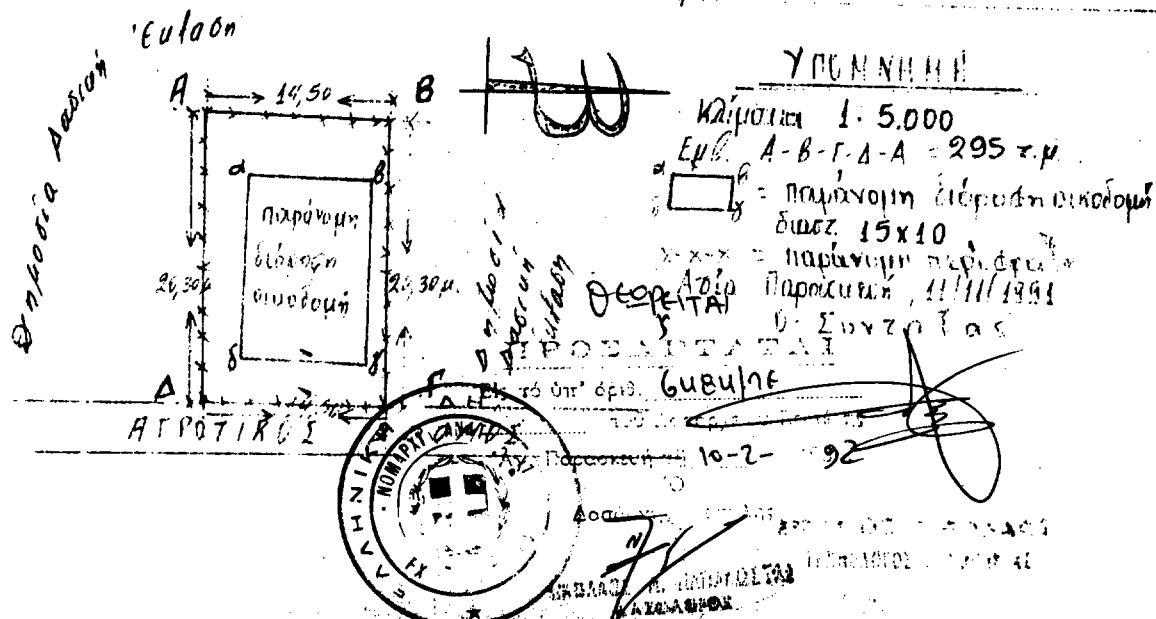 Δημοσία Δασική Έκταση
Α 14,50 Β
20,30μ. 20,30μ.
α β
παράνομη
διόροφη
οικοδομή
δ γ
Δ Γ
ΑΓΡΟΤΙΚΟΣ
Δημοσία
Δασική
Έκταση
ΥΠΟΜΝΗΜΑ
Κλίμακα 1.5.000
Εμβ. Α-Β-Γ-Δ-Α = 295 τ.μ.
α β
δ γ = παράνομη διόροφη οικοδομή
διαστ. 15x10
x-x-x = παράνομη περίφραξη
Παρασκευή, 11/11/1991
Ο Συντάξας
ΘΕΩΡΕΙΤΑΙ
ΠΡΟΣΑΡΤΑΤΑΙ
Εἰς τό ὑπ' ἀριθ. 6484/ΠΕ
Ἁγ. Παρασκευή 10-2-92
Ὁ
ΕΛΛΗΝΙΚΗ
ΝΟΜΑΡΧΙ